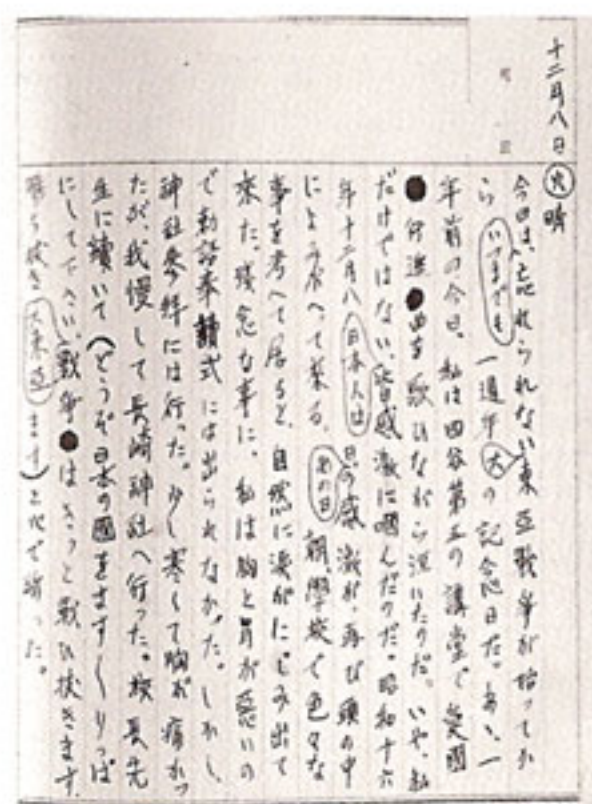 十二月八日㊋晴
今日は、忘れられない大東亜戦争が始ってか
らいつまでも一週年の記念日だ。あゝ、一
年前の今日、私は四谷第五の講堂で愛國
行進曲を歌ひながら泣いたのだ。いや、私
だけではない、日本人は皆感激に咽んだのだ。昭和十六
年十二月八日のあの日の感激が、再び頭の中
によみがへって来る。朝、學校で色々な
事を考へて居ると、自然に涙がにじみ出て
来た。残念な事に、私は胸と胃が悪いの
で勅語奉讀式には出られなかった。しかし、
神社参拝には行った。少し寒くて胸が痛かっ
たが、我慢して長崎神社へ行った。校長先
生に續いて(どうぞ日本の國をます〱りっぱ
にして下さい。大東亜戦争はきっと戦ひ抜きます。
勝ち抜きます)と心で誓った。